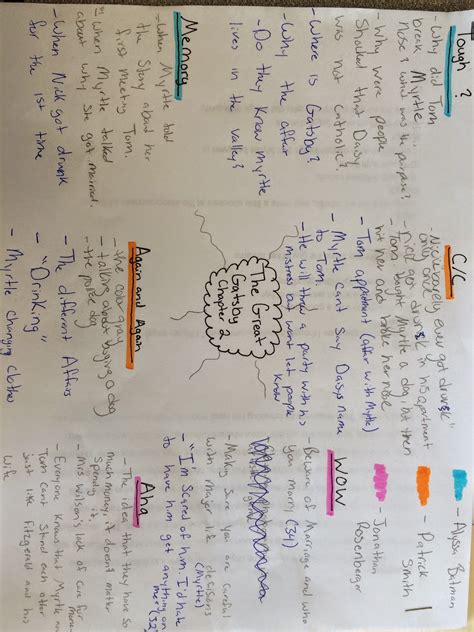 Tough ?
- Why did Tom
break Myrtle
nose? What was the purpose?
- Why were people
Shocked that Daisy
was not catholic?
- Where is Gatsby?
- Why the affair
- Do they know Myrtle
lives in the valley?
Memory
- When Myrtle told
the story about her
first meeting Tom.
- When Myrtle talked
about why she got married.
- When Nick got drunk
for the 1st time
C/C
- "Nick barely ever got drunk"
only once
- Nick got drunk in his apartment
- Tom bought Myrtle a dog, but then
hit her and broke her nose
- Tom appartment (after with Myrtle)
- Myrtle cant say Daisys name
to Tom.
- He will throw a party with his
mistress but wont let people
know
The Great
Gatsby
Chapter 2
Again and Again
- the color gray
- talking about buying a dog
- the police dog
- The different Affairs
- "Drinking"
- Myrtle changing clothes
- Alyssa Batman
- Patrick
Smith
- Jonathan
Rosenberger
WOW
- Beware of Marriage and who
you marry (34)
- Making sure you are careful
with major life decisions
(Myrtle)
- "I'm scared of him I'd hate
to have him get anything on
me (32)
Aha
- The idea that they have so
much money, it doesnt matter
spending it,
- Mrs Wilson's lack of care for
money
- Everyone knows that Myrtle and
Tom cant stand each other
just like Fitzgerald and his
wife